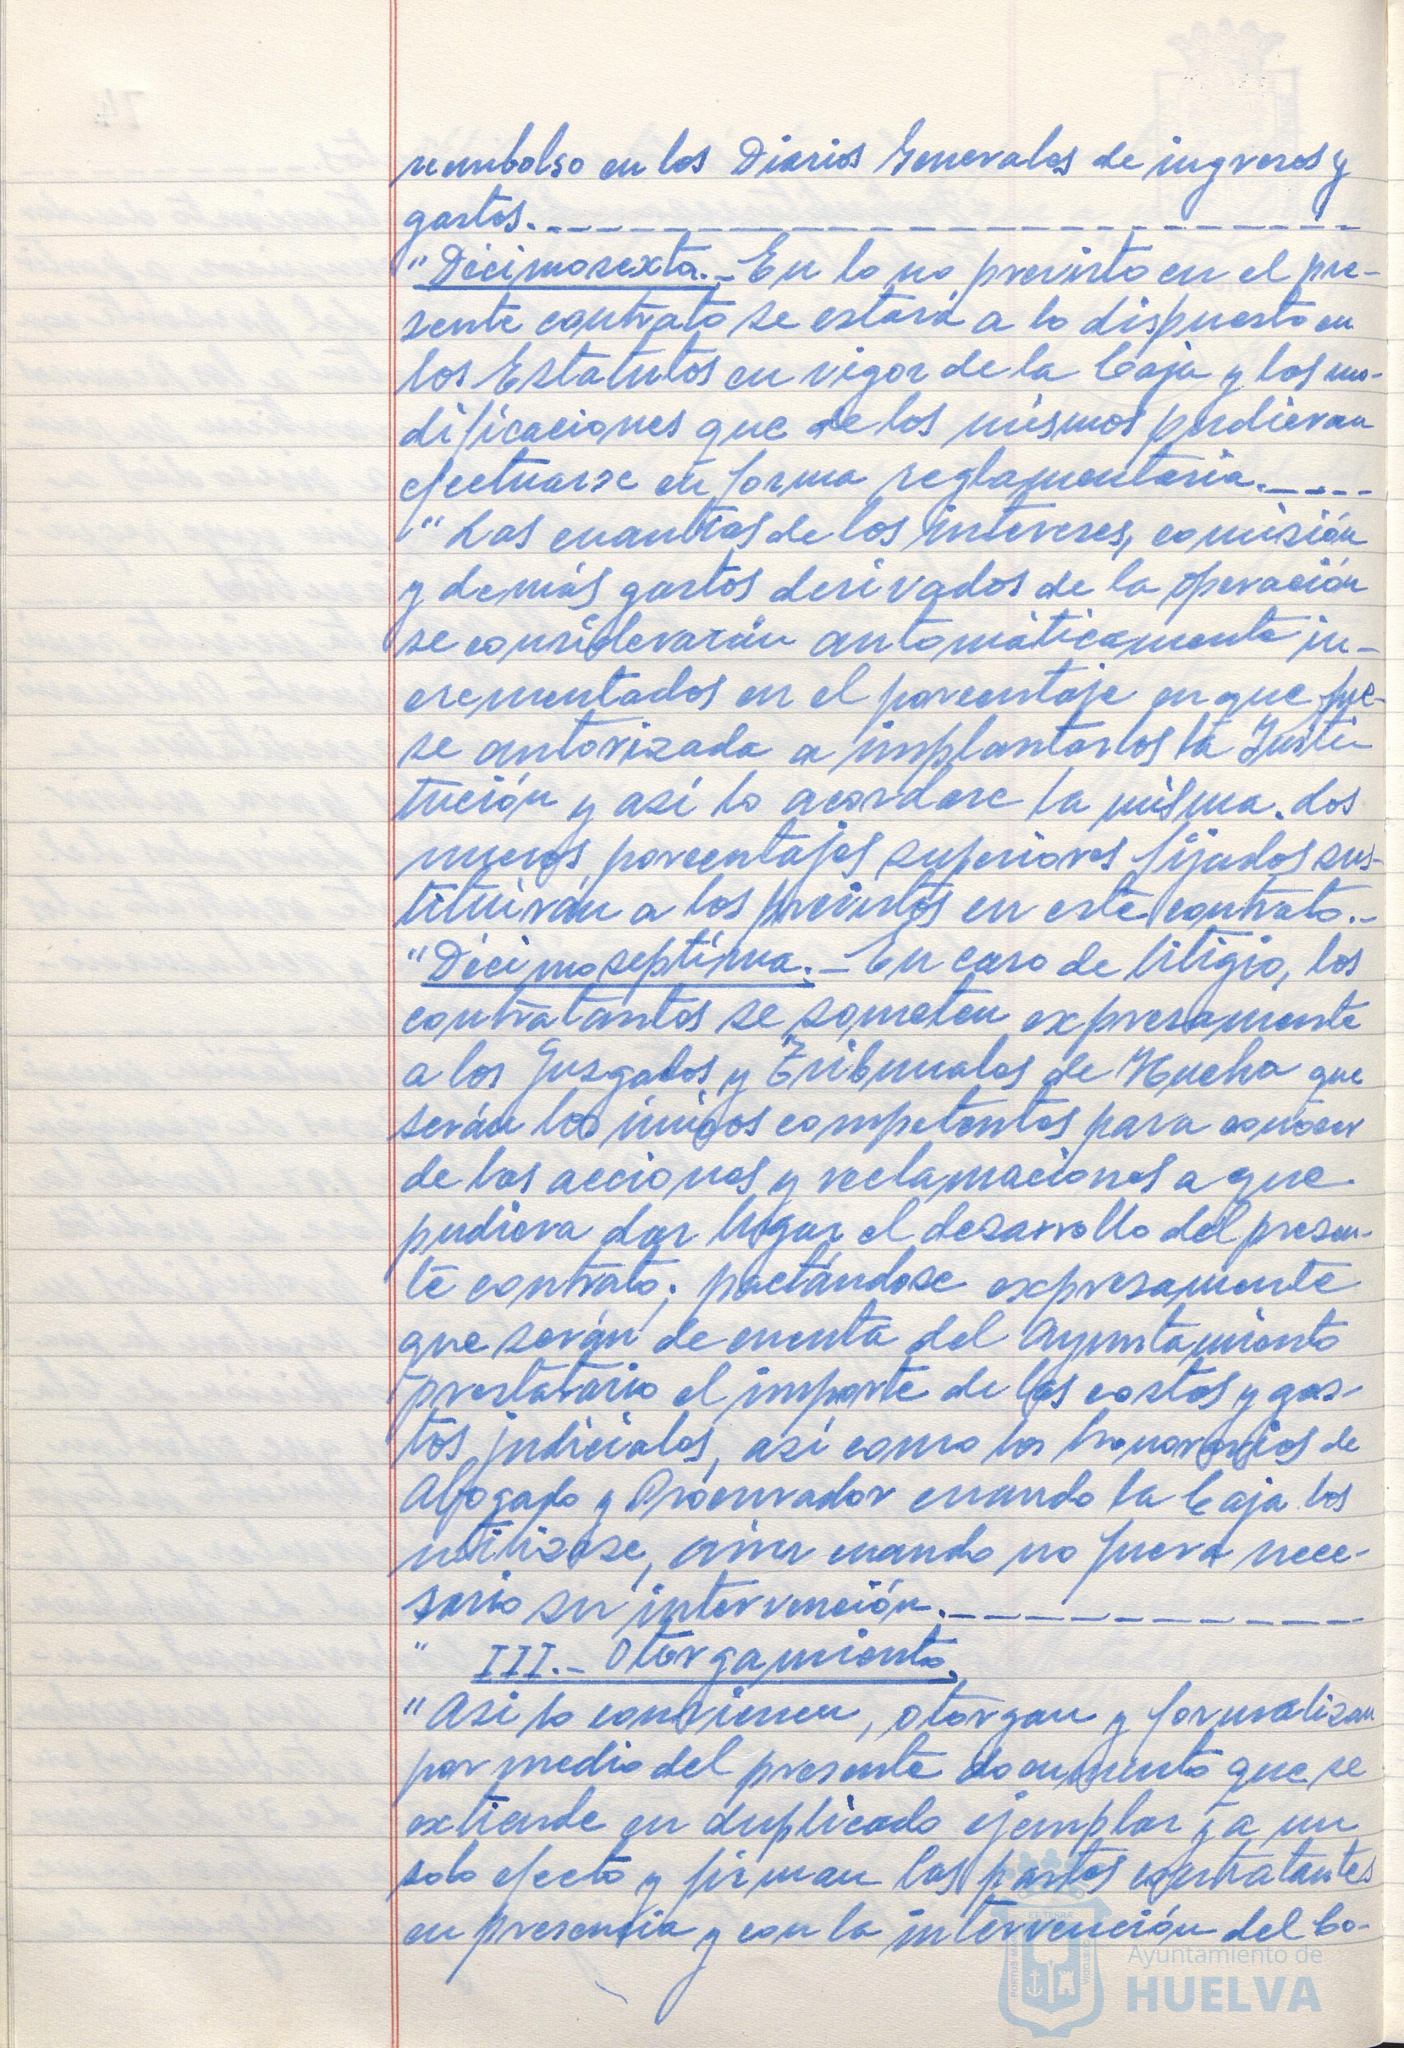 reembolso en los Diarios Generales de ingresos y
gastos.
"Décimosexta.- En lo no previsto en el pre-
sente contrato se estará a lo dispuesto en
los Estatutos en vigor de la Caja y las mo-
dificaciones que de los mismos pudieran
efectuarse en forma reglamentaria.
"Las cuantías de los intereses, comisión
y demás gastos derivados de la operación
se considerarán automáticamente in-
crementados en el porcentaje en que fue-
se autorizada a implantarlos la Insti
tución y así lo acordare la misma. Los
nuevos porcentajes superiores fijados sus-
tituirán a los previstos en este contrato.-
"Décimoseptima.- En caso de litigio, los
contratantes se someten expresamente
a los Juzgados y Tribunales de Huelva que
serán los únicos competentes para conocer
de las acciones y reclamaciones a que
pudiera dar lugar el desarrollo del presen-
te contrato; pactándose expresamente
que serán de cuenta del Ayuntamiento
prestatario el importe de las costas y gas-
tos judiciales, así como los honorarios de
Abogado y Procurador cuando la Caja los
utilizase, aún cuando no fuera nece-
sario su intervención.
" III.- Otorgamiento.
"Asi lo convienen, otorgan y formalizan
por medio del presente documento que se
extiende en duplicado ejemplar y a un
solo efecto y firman las partes contratantes
en presencia y con la intervención del Co-
Ayuntamiento de
HUELVA